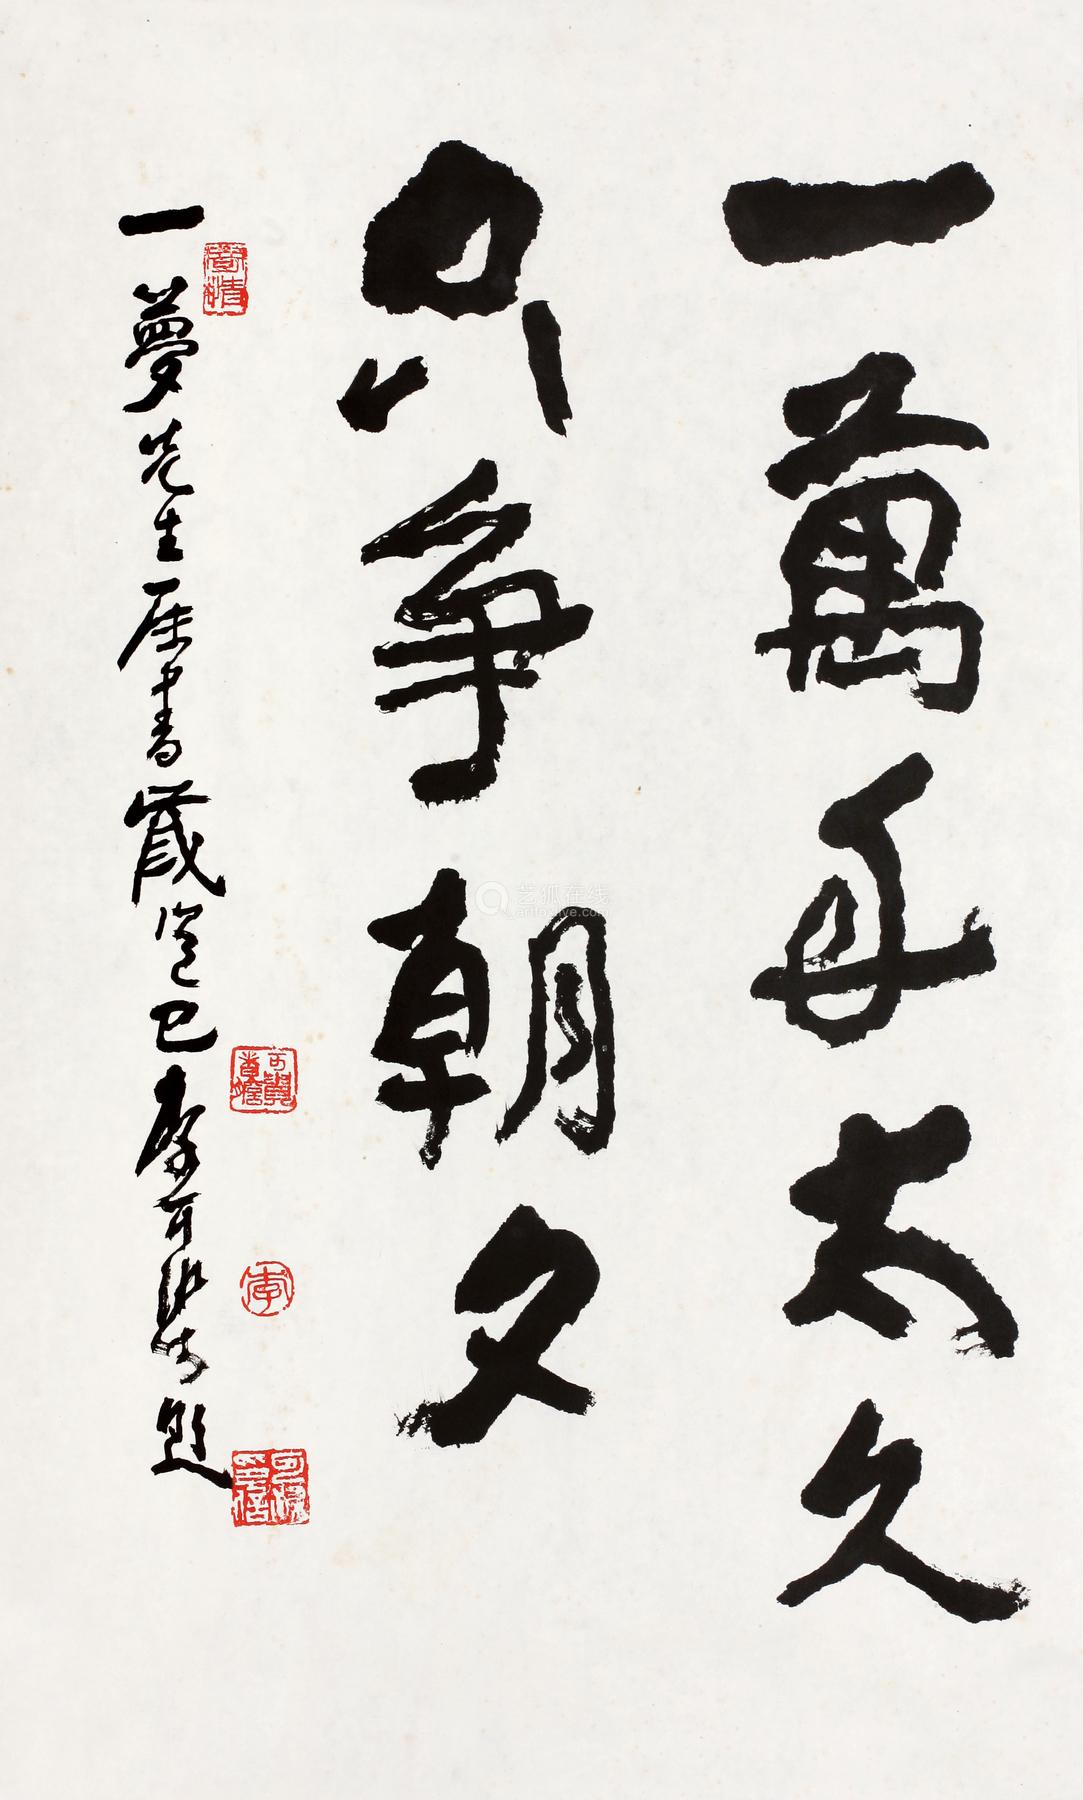 一萬年太久
只爭朝夕
一夢先生屬書歲巳李可染題
可貴者膽
李
艺狐在线
artfoxlive.com